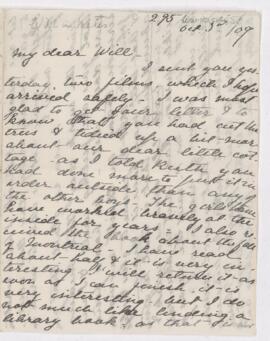 295
Oct 3rd /09
My dear Will -
I sent you yes-
terday two films which I hope
arrived safely - I was most
glad to get your letter & to
know that you had cut the
trees & tidied up a bit - mar
about our dear little cot-
tage - as I told Ruth you
had done more to put it in
order outside than any of
the other boys - The girls have
have worked bravely at the
inside for years - I also re-
ceived the book about the
& Montreal - I have read
about half & it is very in-
teresting - I will return it as
soon as I can finish - it is
very interesting - but I do
not much like lending a
library book - as that is